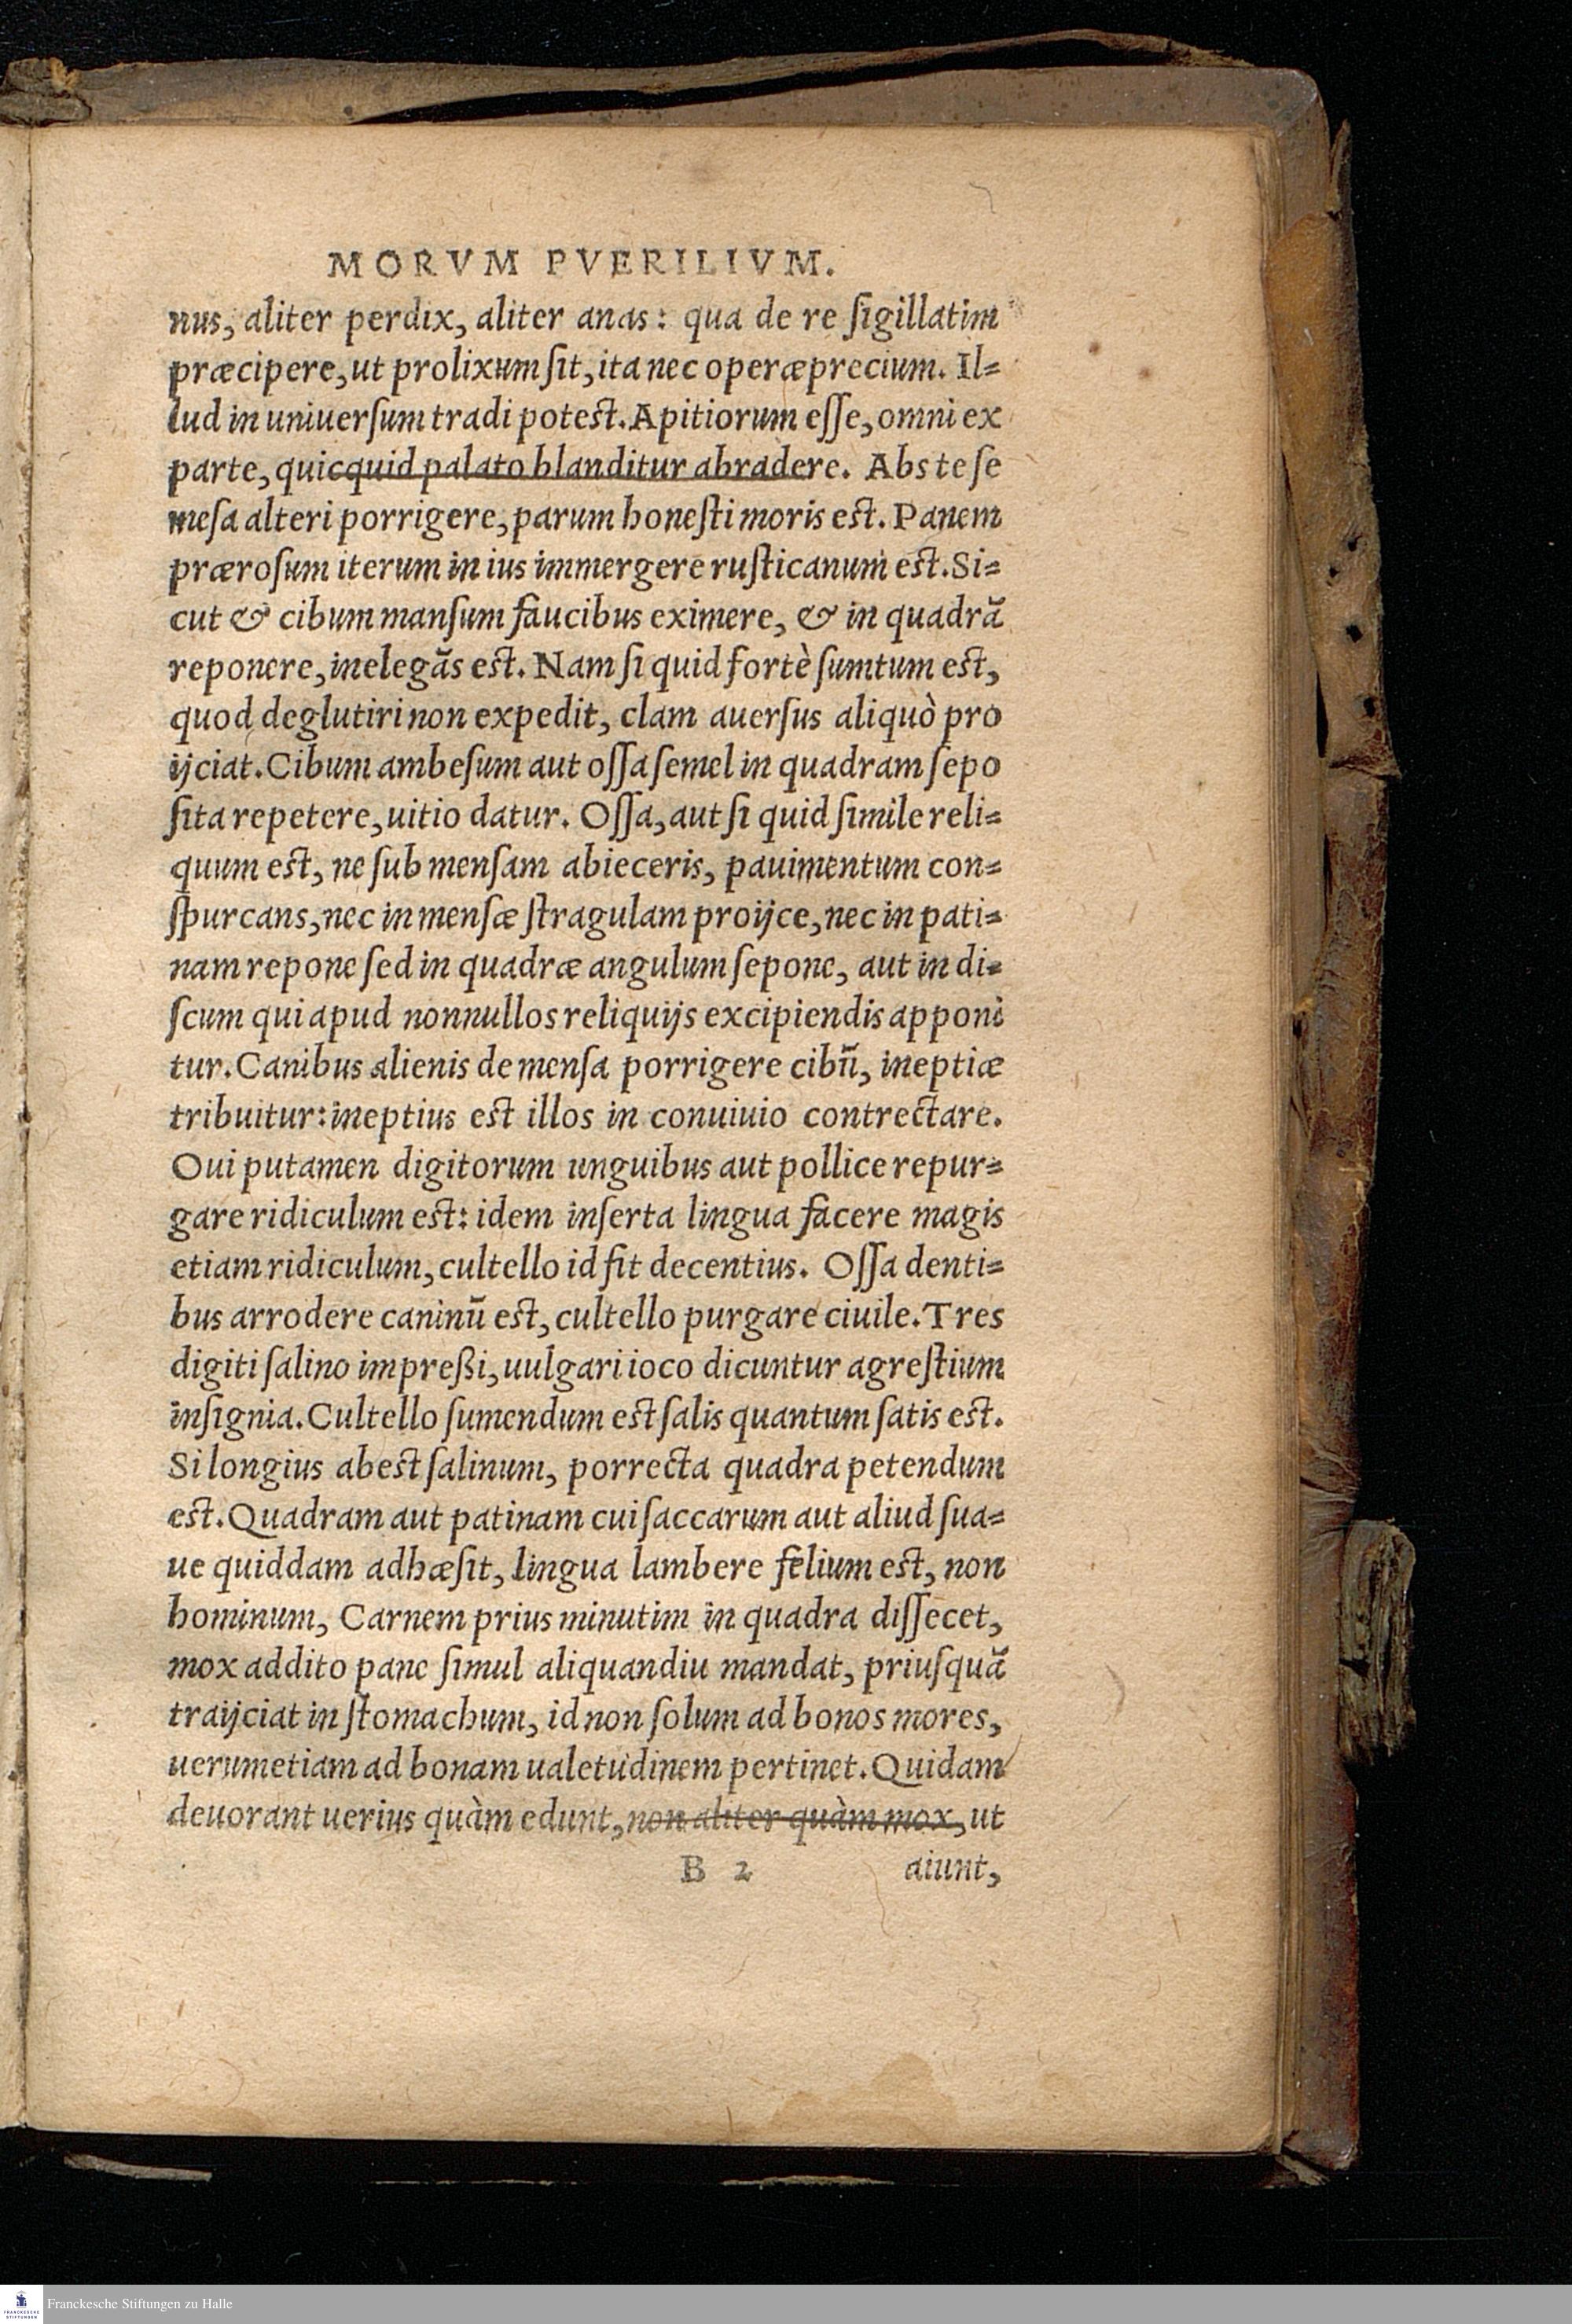 MORVM PVERILIVM.
nus, aliter perdix, aliter anas: qua de re ſigillatim
præcipere, ut prolixum ſit, ita nec operæprecium. Il=
lud in uniuerſum tradi poteſt. Apitiorum eſſe, omni ex
parte, quicquid palato blanditur abradere. Abs te ſe
meſa alteri porrigere, parum honeſti moris eſt. Panem
præroſum iterum in ius immergere ruſticanum eſt. Si=
cut & cibum manſum faucibus eximere, & in quadrã
reponere, inelegãs eſt. Nam ſi quid fortè ſumtum eſt,
quod deglutiri non expedit, clam auerſus aliquò pro
ijciat. Cibum ambeſum aut oſſa ſemel in quadram ſepo
ſita repetere, uitio datur. Oſſa, aut ſi quid ſimile reli=
quum eſt, ne ſub menſam abieceris, pauimentum con=
ſpurcans, nec in menſæ ſtragulam proijce, nec in pati=
nam repone ſed in quadræ angulum ſepone, aut in di=
ſcum qui apud nonnullos reliquijs excipiendis apponi
tur. Canibus alienis de menſa porrigere cibũ, ineptiæ
tribuitur: ineptius eſt illos in conuiuio contrectare.
Oui putamen digitorum unguibus aut pollice repur=
gare ridiculum eſt: idem inſerta lingua facere magis
etiam ridiculum, cultello id fit decentius. Oſſa denti=
bus arrodere caninũ eſt, cultello purgare ciuile. Tres
digiti ſalino impreßi, uulgari ioco dicuntur agreſtium
inſignia. Cultello ſumendum eſt ſalis quantum ſatis eſt.
Si longius abeſt ſalinum, porrecta quadra petendum
eſt. Quadram aut patinam cui ſaccarum aut aliud ſua=
ue quiddam adhæſit, lingua lambere felium eſt, non
hominum, Carnem prius minutim in quadra diſſecet,
mox addito pane ſimul aliquandiu mandat, priuſquã
traijciat in ſtomachum, id non ſolum ad bonos mores,
uerumetiam ad bonam ualetudinem pertinet. Quidam
deuorant uerius quàm edunt, non aliter quàm mox, ut
B 2 aiunt,
Franckesche Stiftungen zu Halle
FRANCKESCHE
STIFTUNGEN